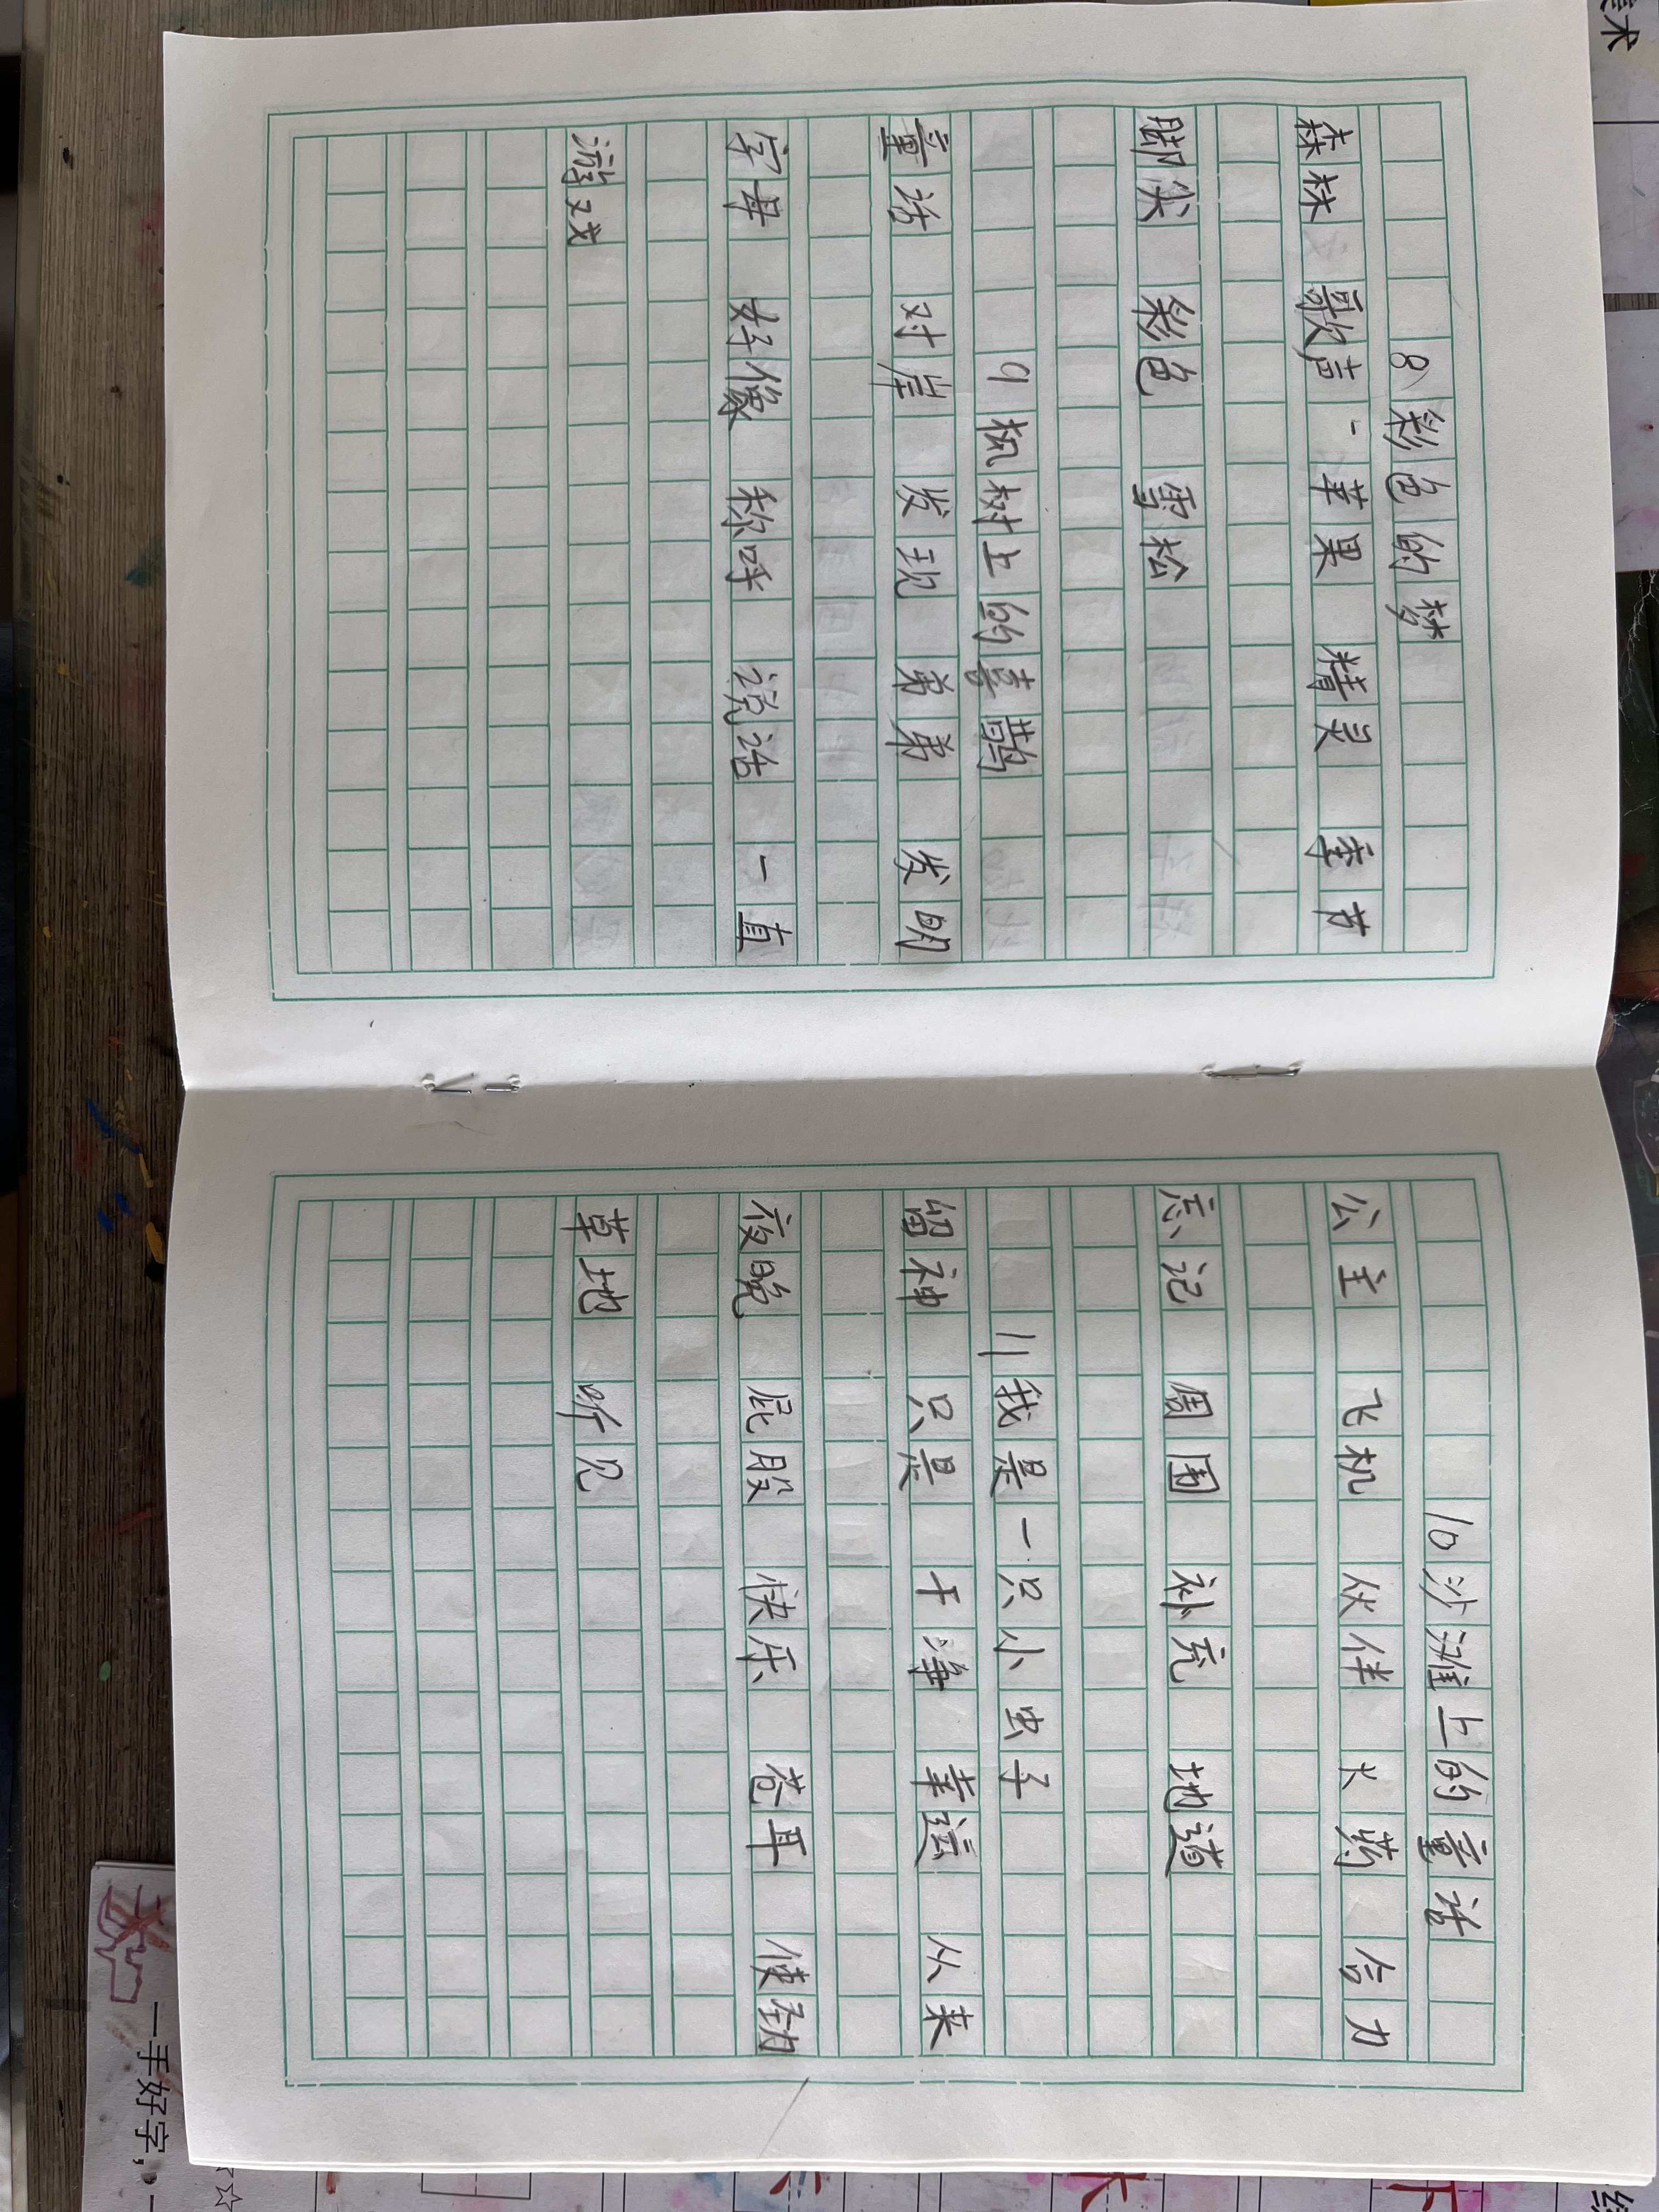 8 彩色的梦
森林 歌声 苹果 精灵 季节
脚尖 彩色 雪松
9 枫树上的喜鹊
童话 对岸 发现 弟弟 发明
字母 好像 称呼 说话 一直
游戏
10 沙滩上的童话
公主 飞机 伙伴 火药 合力
忘记 周围 补充 地道
11 我是一只小虫子
留神 只是 干净 幸运 从来
夜晚 屁股 快乐 苍耳 使劲
草地 听见
一手好字，